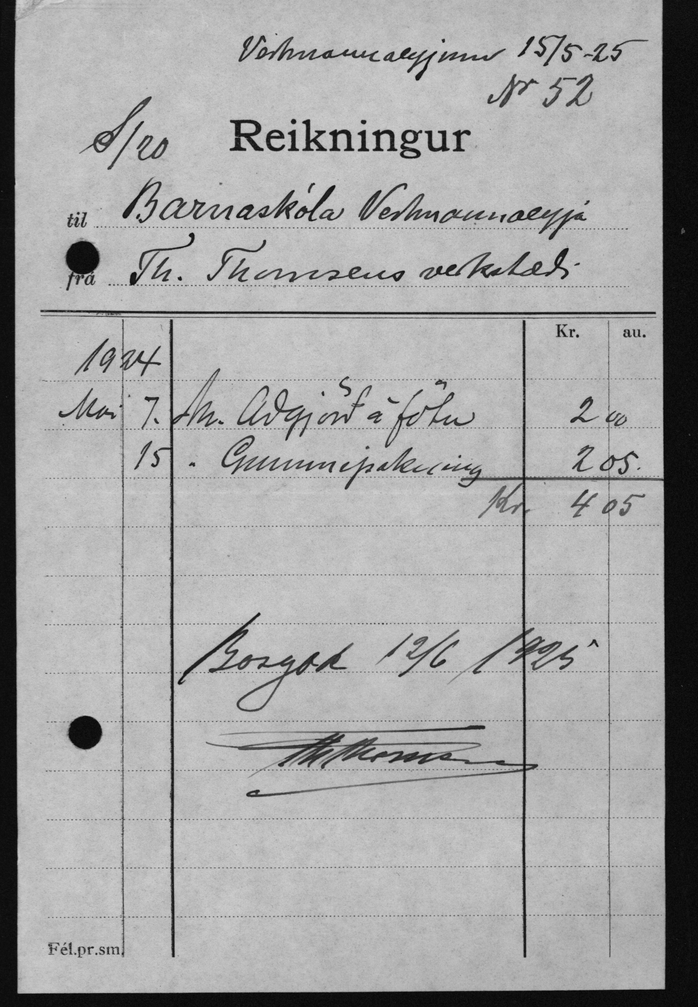 Vestmannaeyjum 15/5-25
Nr 52
S/20
Reikningur
til Barnaskóla Vestmannaeyja
frá Th. Thomsens verkstædi
Kr. au.
1924
Mai 7. Aðgjörð á fötu 2 00
15 " Gummipakning 2 05.
Kr. 4 05
Borgad 12/6 1925
Th Thomsen
Fél.pr.sm.